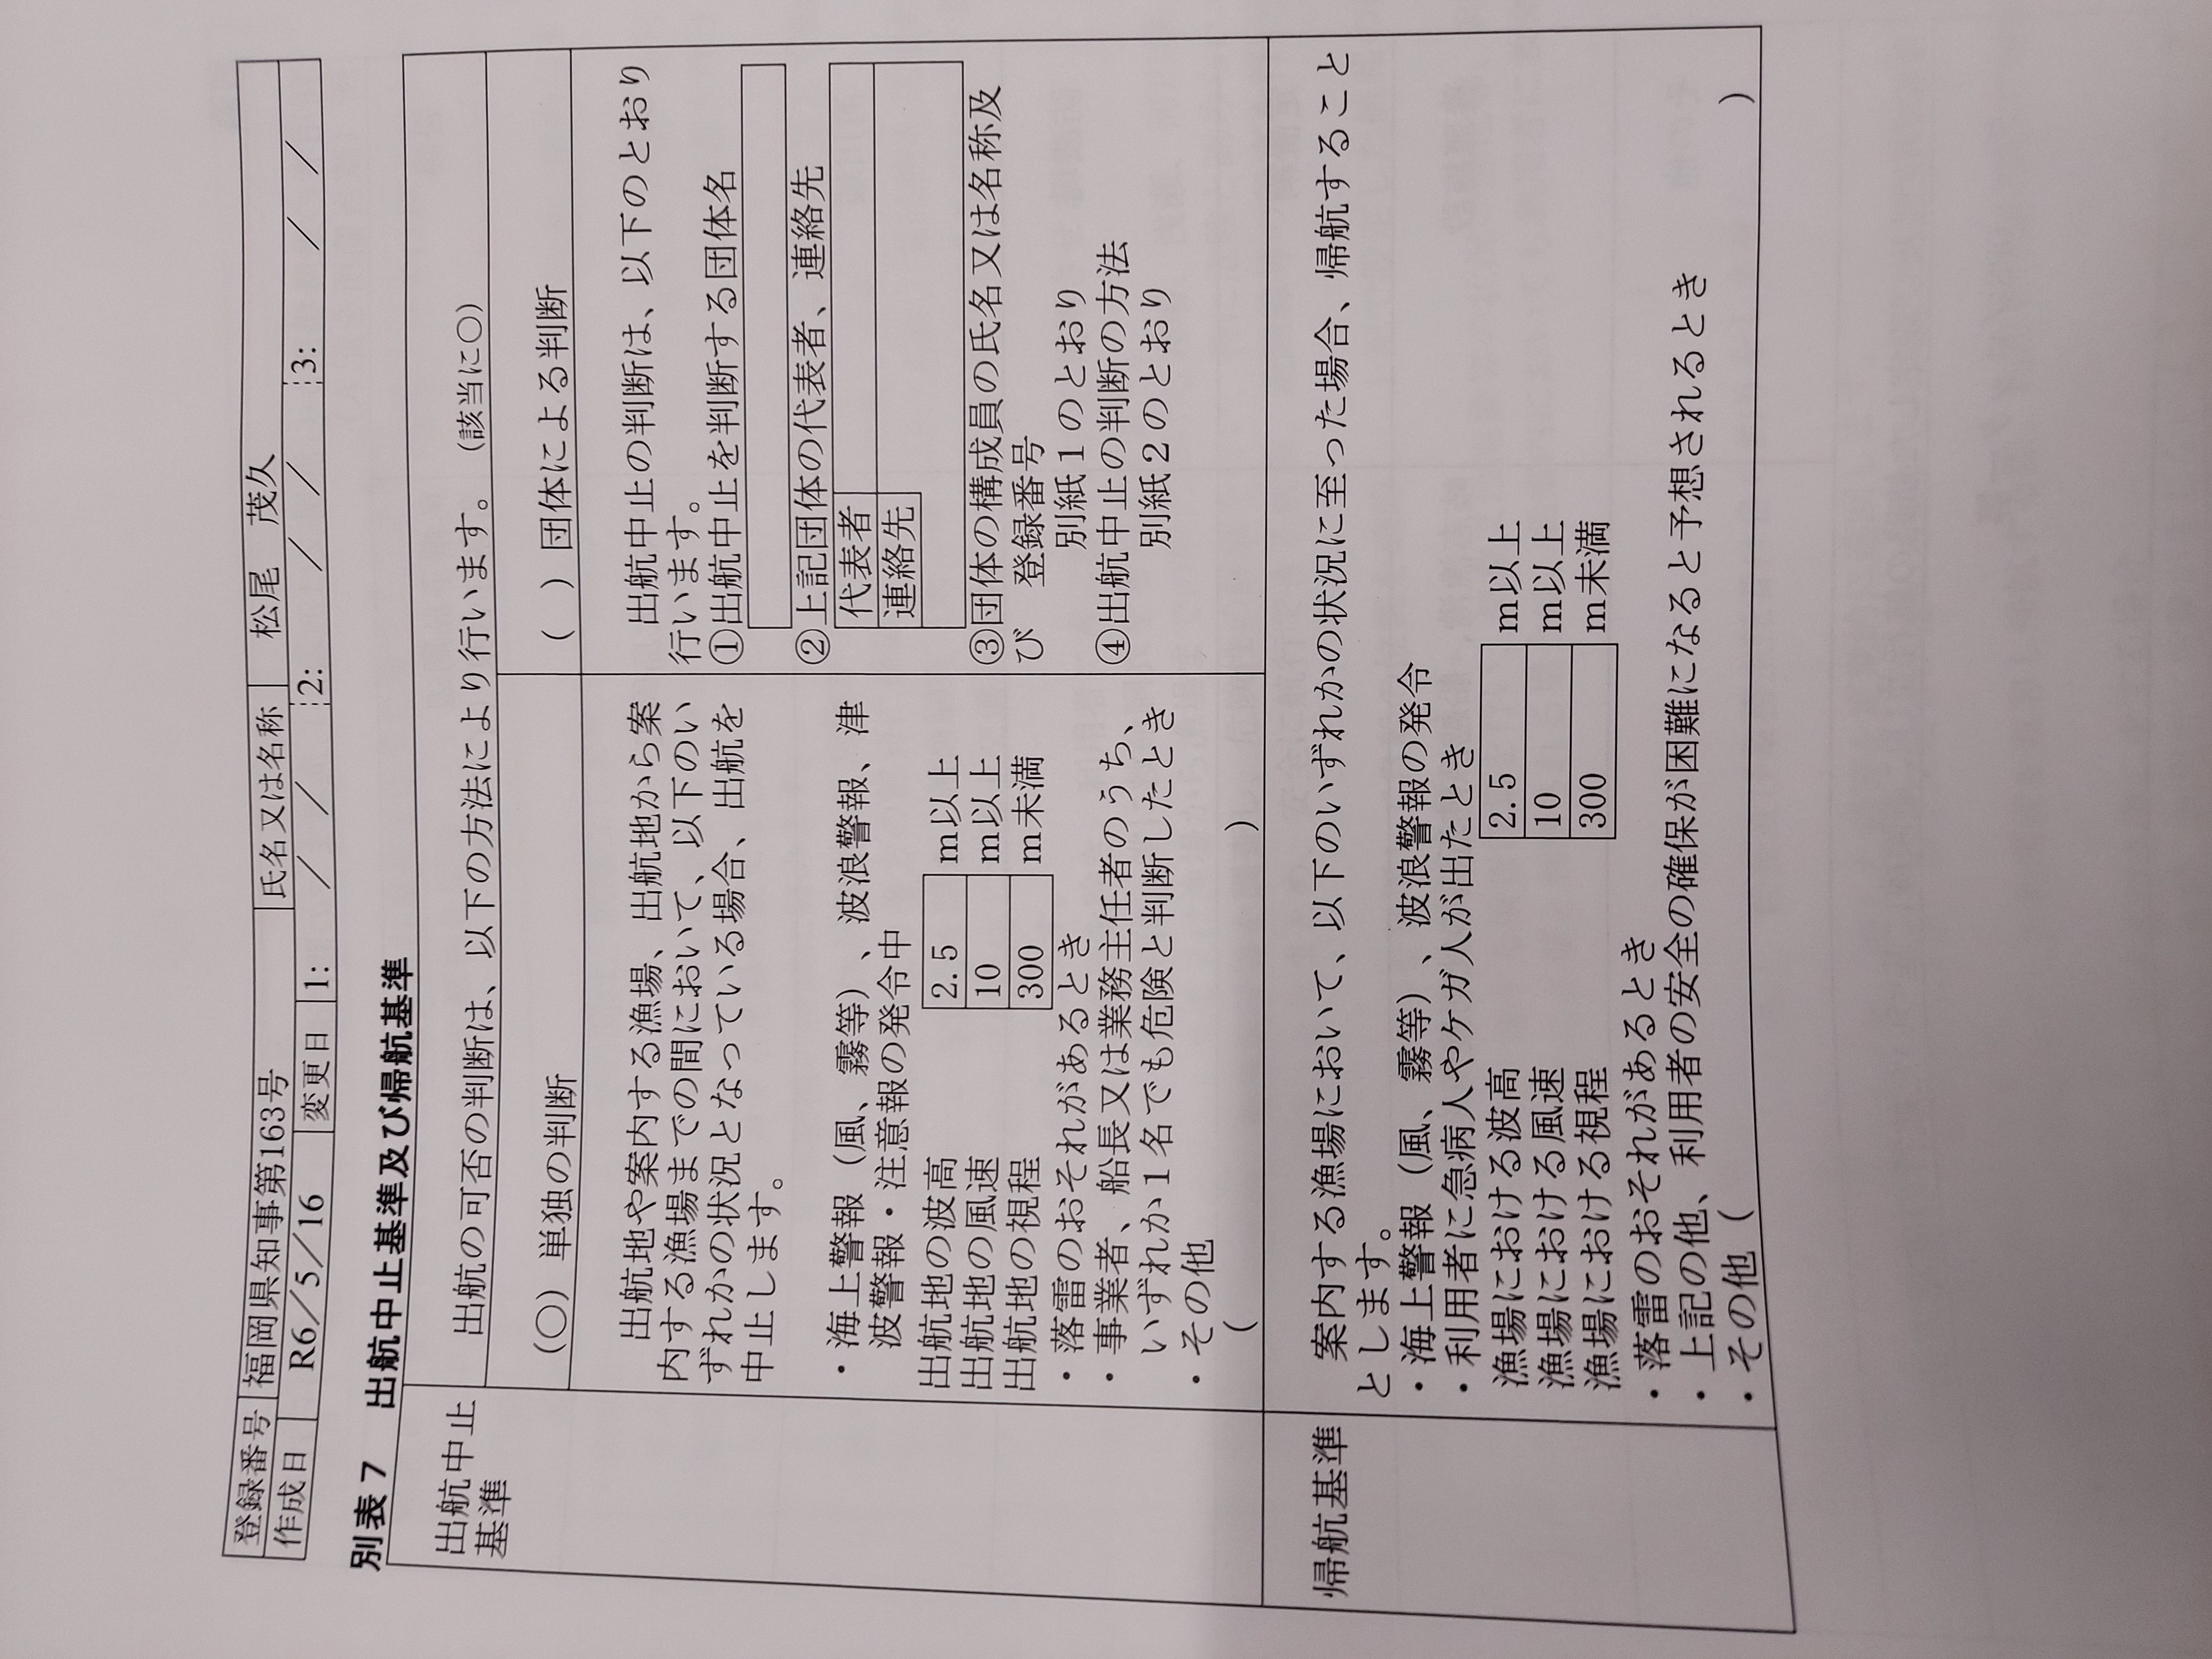 登録番号 福岡県知事第163号 氏名又は名称 松尾 茂久
作成日 R6/5/16 変更日 1: / / 2: / / 3: / /
別表7 出航中止基準及び帰航基準
出航中止基準
出航の可否の判断は、以下の方法により行います。(該当に○)
(○) 単独の判断
出航地や案内する漁場、出航地から案
内する漁場までの間において、以下のい
ずれかの状況となっている場合、出航を
中止します。
・海上警報(風、霧等)、波浪警報、津
波警報・注意報の発令中
出航地の波高 2.5 m以上
出航地の風速 10 m以上
出航地の視程 300 m未満
・落雷のおそれがあるとき
・事業者、船長又は業務主任者のうち、
いずれか1名でも危険と判断したとき
・その他
( )
( ) 団体による判断
出航中止の判断は、以下のとおり
行います。
①出航中止を判断する団体名
②上記団体の代表者、連絡先
代表者
連絡先
③団体の構成員の氏名又は名称及
び 登録番号
別紙1のとおり
④出航中止の判断の方法
別紙2のとおり
帰航基準
案内する漁場において、以下のいずれかの状況に至った場合、帰航すること
とします。
・海上警報(風、霧等)、波浪警報の発令
・利用者に急病人やケガ人が出たとき
漁場における波高 2.5 m以上
漁場における風速 10 m以上
漁場における視程 300 m未満
・落雷のおそれがあるとき
・上記の他、利用者の安全の確保が困難になると予想されるとき
・その他( )